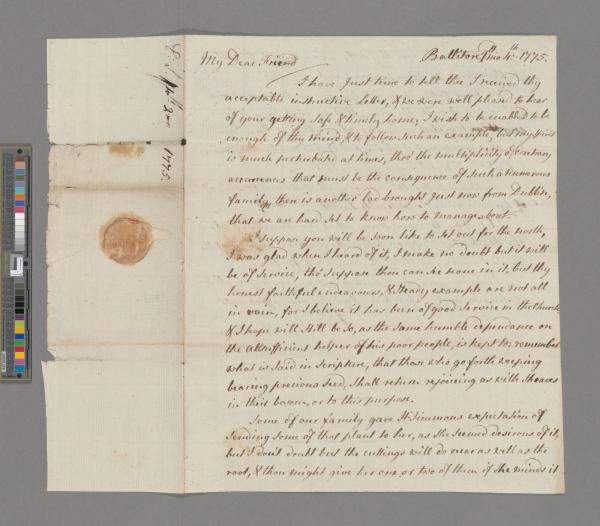 My Dear Friend
Ballitore 4th 1775.
I have Just time to tell thee I received thy
acceptable instructive Letter, & we were well pleased to hear
of your getting safe & timely home, I wish to be enabled to be
enough of thy mind, & to follow such an example, but my spirit
is much perturbate at times, thro' the multiplicity of contrary
occurrences that must be the consequence of such a numerous
family, there is another Lad brought Just now from Dublin,
that we are hard set to know how to manage about.
I suppose you will be soon like to set out for the north,
I was glad when I heard of it, I make no doubt but it will
be of Service, tho' suppose thou can See none in it, but thy
honest faithful endeavours, & Steady example are not all
in vain, for I believe it has been of good Service in the Church
& I hope will still be so, as the same humble dependance on
the Allsufficient helper of his poor people, is kept to; remember
what is said in Scripture, that those who go forth weeping
bearing precious Seed, Shall return rejoicing as with Sheaves
in their bosom, or to this purpose.
Some of our family gave H: Simmons expectation of
Sending some of that plant to her, as she seemed desirous of it,
but I don't doubt but the cuttings will do near as well as the
root, & thou might give her one or two of them if she minds it
1775.